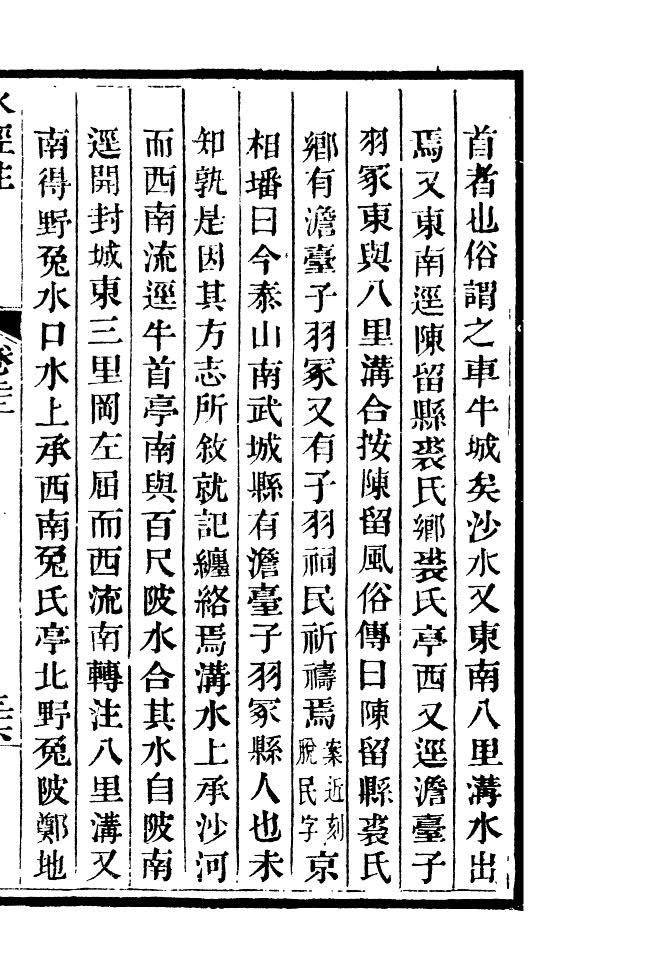 首者也俗謂之車牛城矣沙水又東南八里溝水出
焉又東南逕陳留縣裘氏鄉裘氏亭西又逕澹臺子
羽冢東與八里溝合按陳留風俗傳曰陳留縣裘氏
鄉有澹臺子羽冢又有子羽祠民祈禱焉案近刻脫民字京
相璠曰今泰山南武城縣有澹臺子羽冢縣人也未
知孰是因其方志所敘就記纏絡焉溝水上承沙河
而西南流逕牛首亭南與百尺陂水合其水自陂南
逕開封城東三里岡左屈而西流南轉注八里溝又
南得野兔水口水上承西南兔氏亭北野兔陂鄭地
水經注